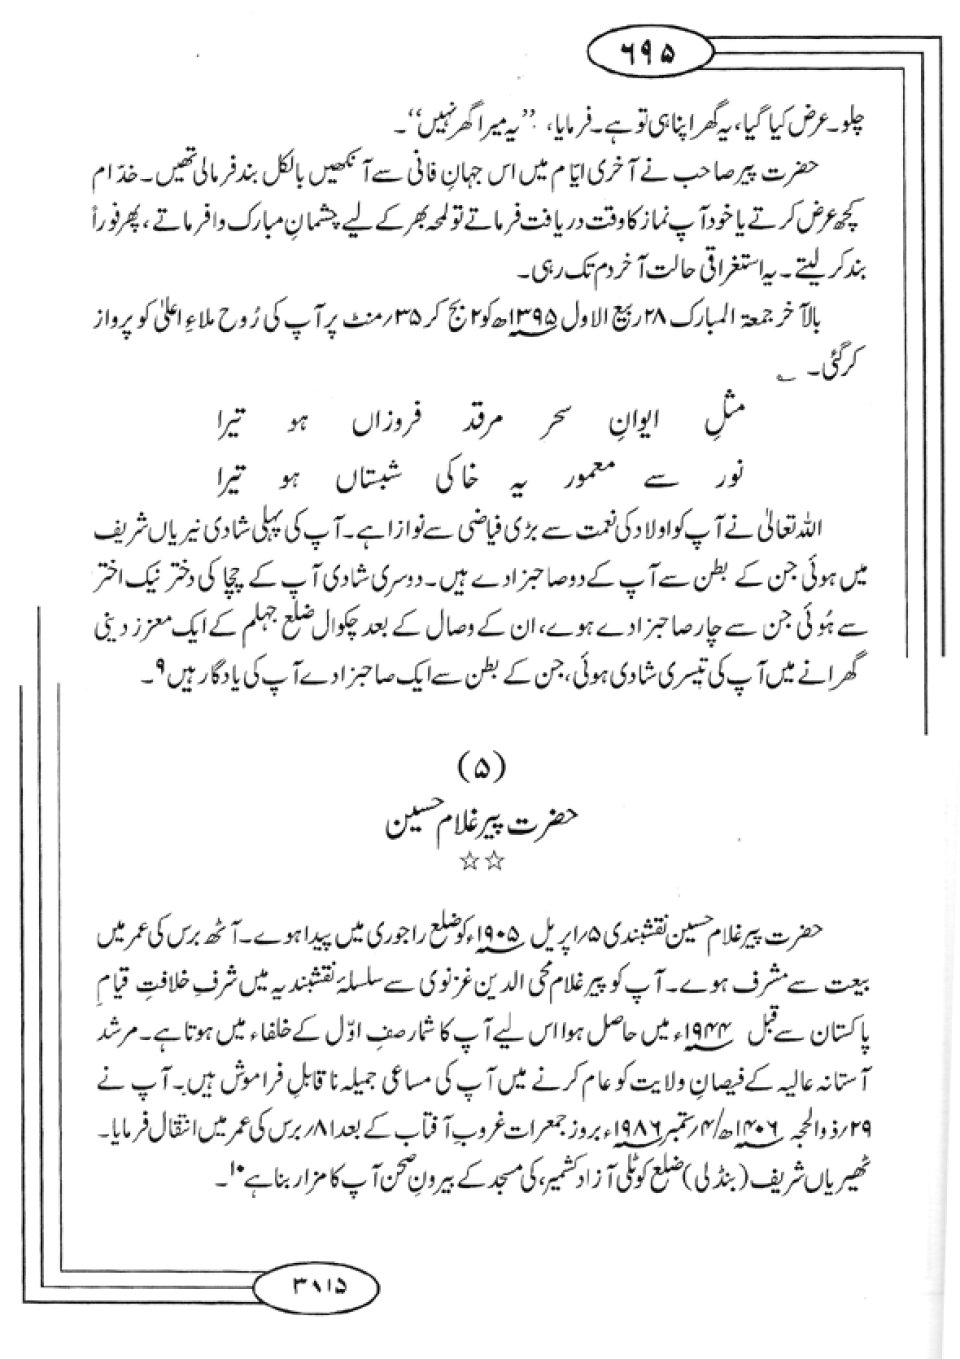 ۶۹۵
چلو۔ عرض کیا گیا، یہ گھر اپنا ہی تو ہے۔ فرمایا، ”یہ میرا گھر نہیں“۔
حضرت پیر صاحب نے آخری ایّام میں اس جہانِ فانی سے آنکھیں بالکل بند فرمالی تھیں۔ خدّام
کچھ عرض کرتے یا خود آپ نماز کا وقت دریافت فرماتے تو لمحہ بھر کے لیے چشمانِ مبارک وا فرماتے، پھر فوراً
بند کرلیتے۔ یہ استغراقی حالت آخر دم تک رہی۔
بالآخر جمعۃ المبارک ۲۸ ربیع الاول ۱۳۹۵ھ کو ۲ بج کر ۳۵؍ منٹ پر آپ کی رُوح ملاءِ اعلیٰ کو پرواز
کرگئی۔ ؎
مثلِ ایوانِ سحر مرقد فروزاں ہو تیرا
نور سے معمور یہ خاکی شبستاں ہو تیرا
اللہ تعالیٰ نے آپ کو اولاد کی نعمت سے بڑی فیاضی سے نوازا ہے۔ آپ کی پہلی شادی نیریاں شریف
میں ہوئی جن کے بطن سے آپ کے دو صاحبزادے ہیں۔ دوسری شادی آپ کے چچا کی دختر نیک اختر
سے ہُوئی جن سے چار صاحبزادے ہوے، ان کے وصال کے بعد چکوال ضلع جہلم کے ایک معزز دینی
گھرانے میں آپ کی تیسری شادی ہوئی، جن کے بطن سے ایک صاحبزادے آپ کی یادگار ہیں۹۔
(۵)
حضرت پیر غلام حسین
☆☆
حضرت پیر غلام حسین نقشبندی ۵؍ اپریل ۱۹۰۵ء کو ضلع راجوری میں پیدا ہوے۔ آٹھ برس کی عمر میں
بیعت سے مشرف ہوے۔ آپ کو پیر غلام محی الدین غزنوی سے سلسلۂ نقشبندیہ میں شرفِ خلافتِ قیامِ
پاکستان سے قبل ۱۹۴۴ء میں حاصل ہوا اس لیے آپ کا شمار صفِ اوّل کے خلفاء میں ہوتا ہے۔ مرشد
آستانہ عالیہ کے فیصانِ ولایت کو عام کرنے میں آپ کی مساعی جمیلہ ناقابلِ فراموش ہیں۔ آپ نے
۲۹؍ ذوالحجہ ۱۴۰۶ھ/۴؍ ستمبر ۱۹۸۶ء بروز جمعرات غروبِ آفتاب کے بعد ۸۱؍ برس کی عمر میں انتقال فرمایا۔
ٹھیریاں شریف (بنڈلی) ضلع کوٹلی آزاد کشمیر، کی مسجد کے بیرونِ صحن آپ کا مزار بنا ہے۱۰۔
۳۸۱۵